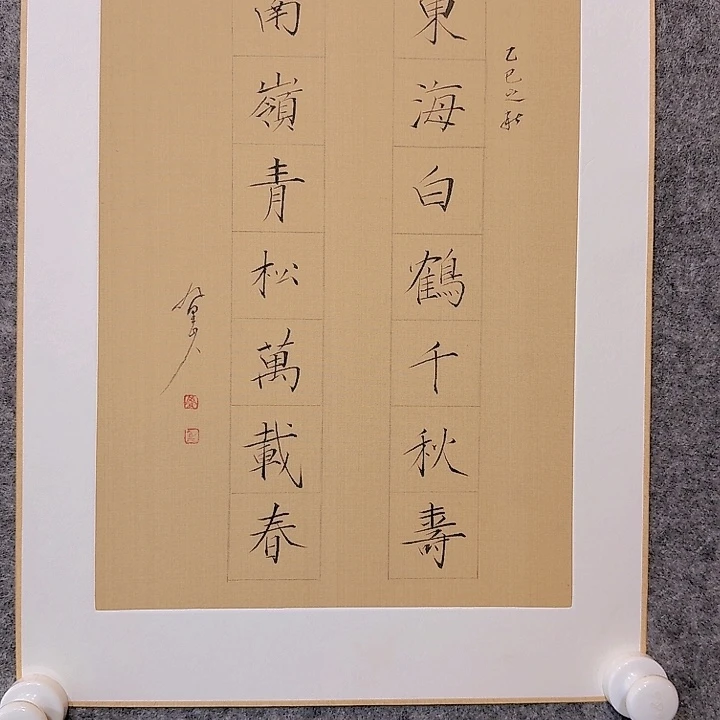 乙巳之秋
東海白鶴千秋壽
南嶺青松萬載春